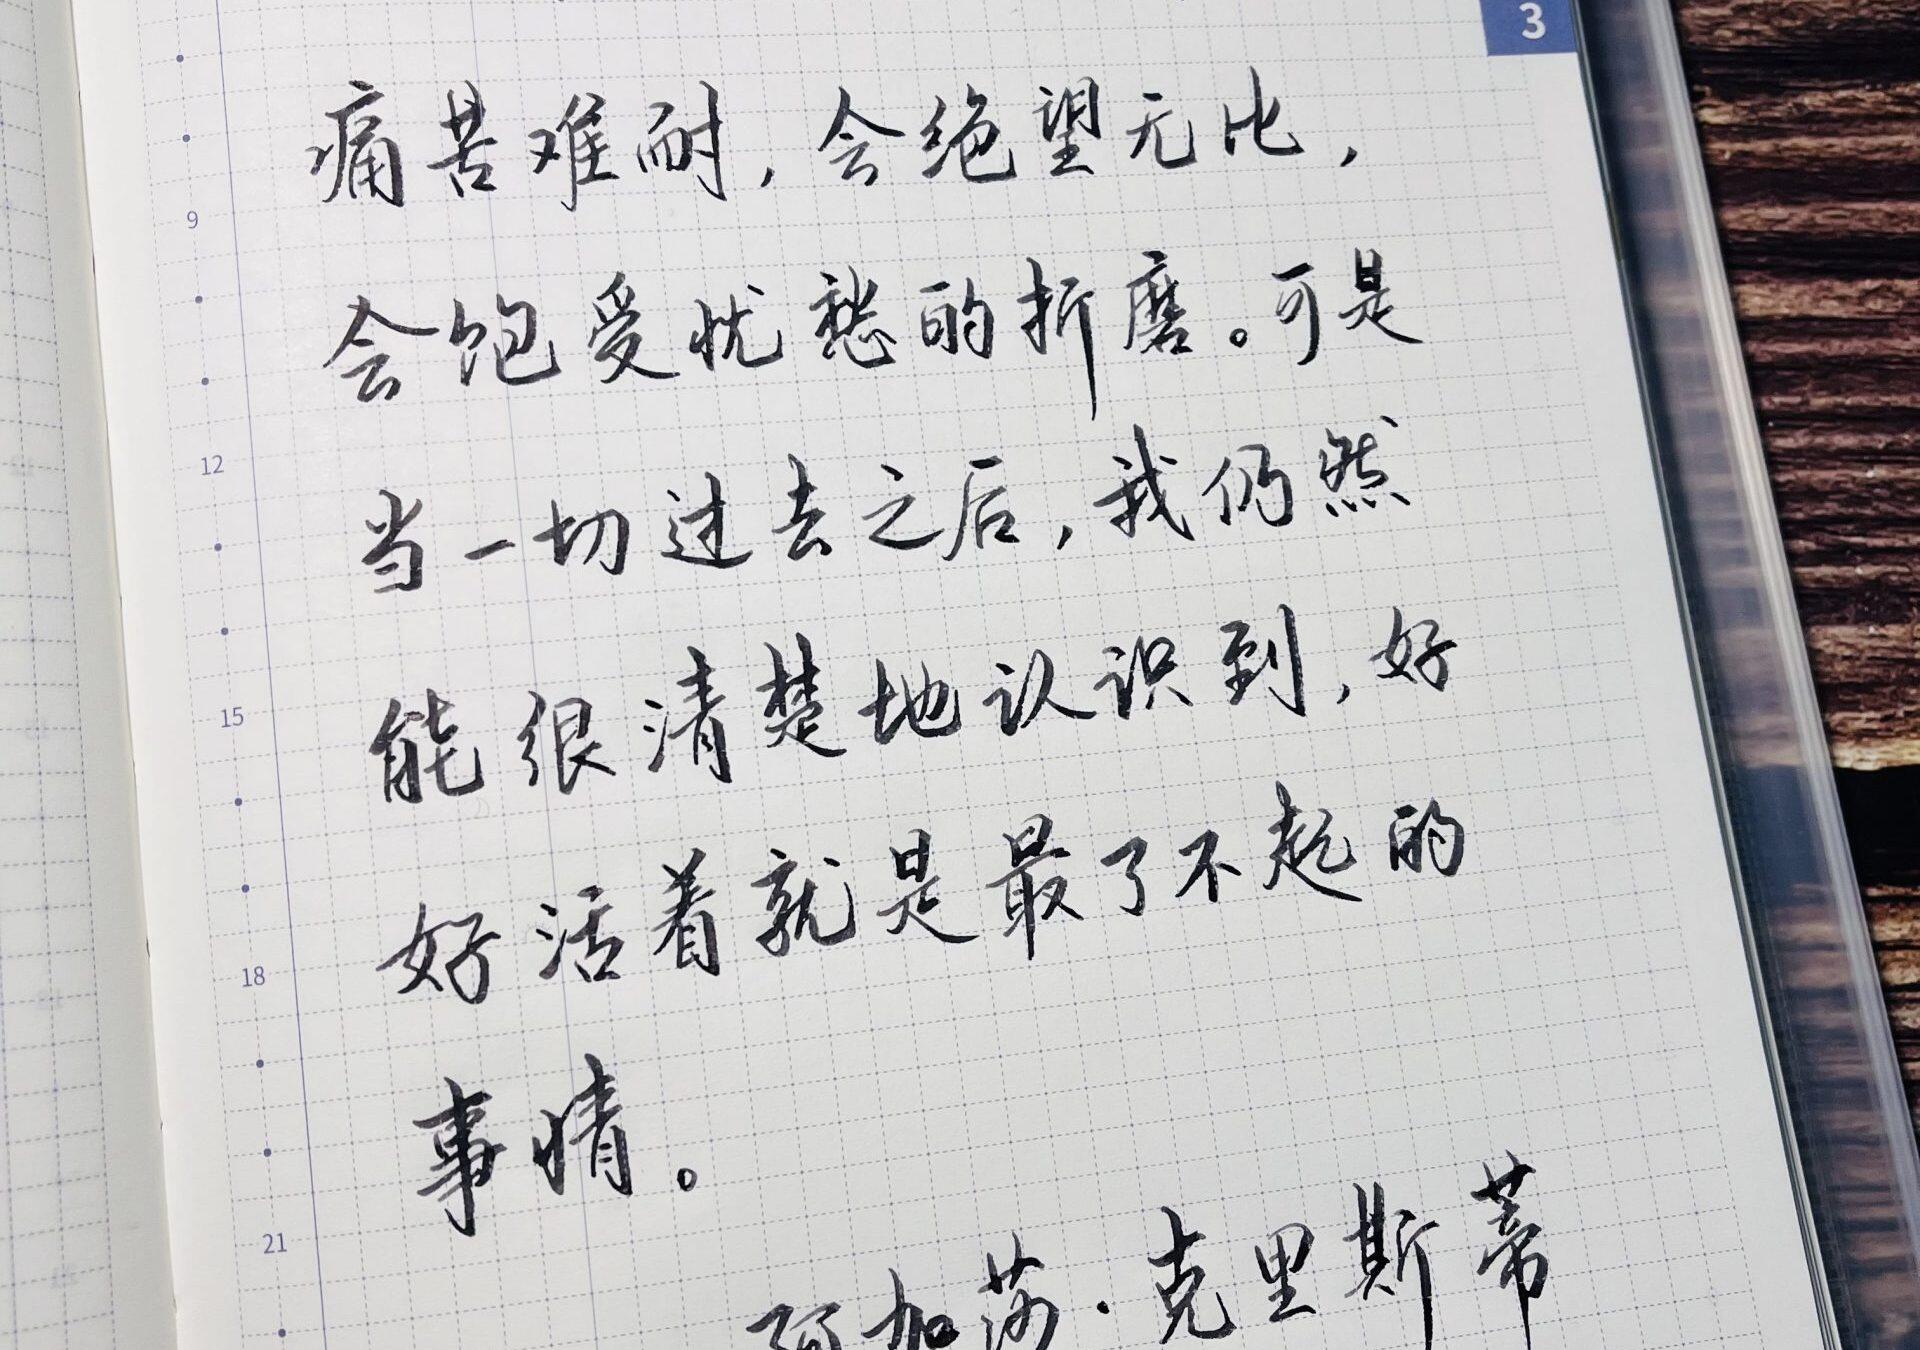 3
痛苦难耐，会绝望无比，
9
会饱受忧愁的折磨。可是
12
当一切过去之后，我仍然
15
能很清楚地认识到，好
18
好活着就是最了不起的
事情。
21
阿加莎·克里斯蒂